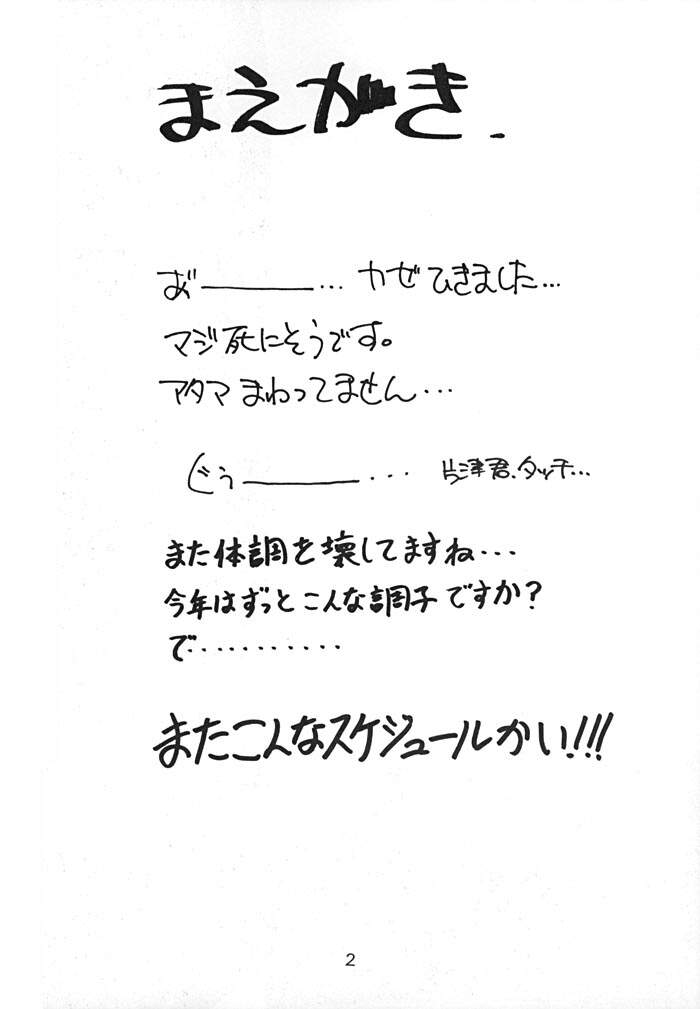 まえがき.
あ゛ーーー… カゼひきました…
マジ死にそうです。
アタマまわってません…
ぐぅーーー… 片津君、タッチ…
また体調を壊してますね…
今年はずっとこんな調子ですか?
で‥‥‥‥‥
またこんなスケジュールかい!!!
2